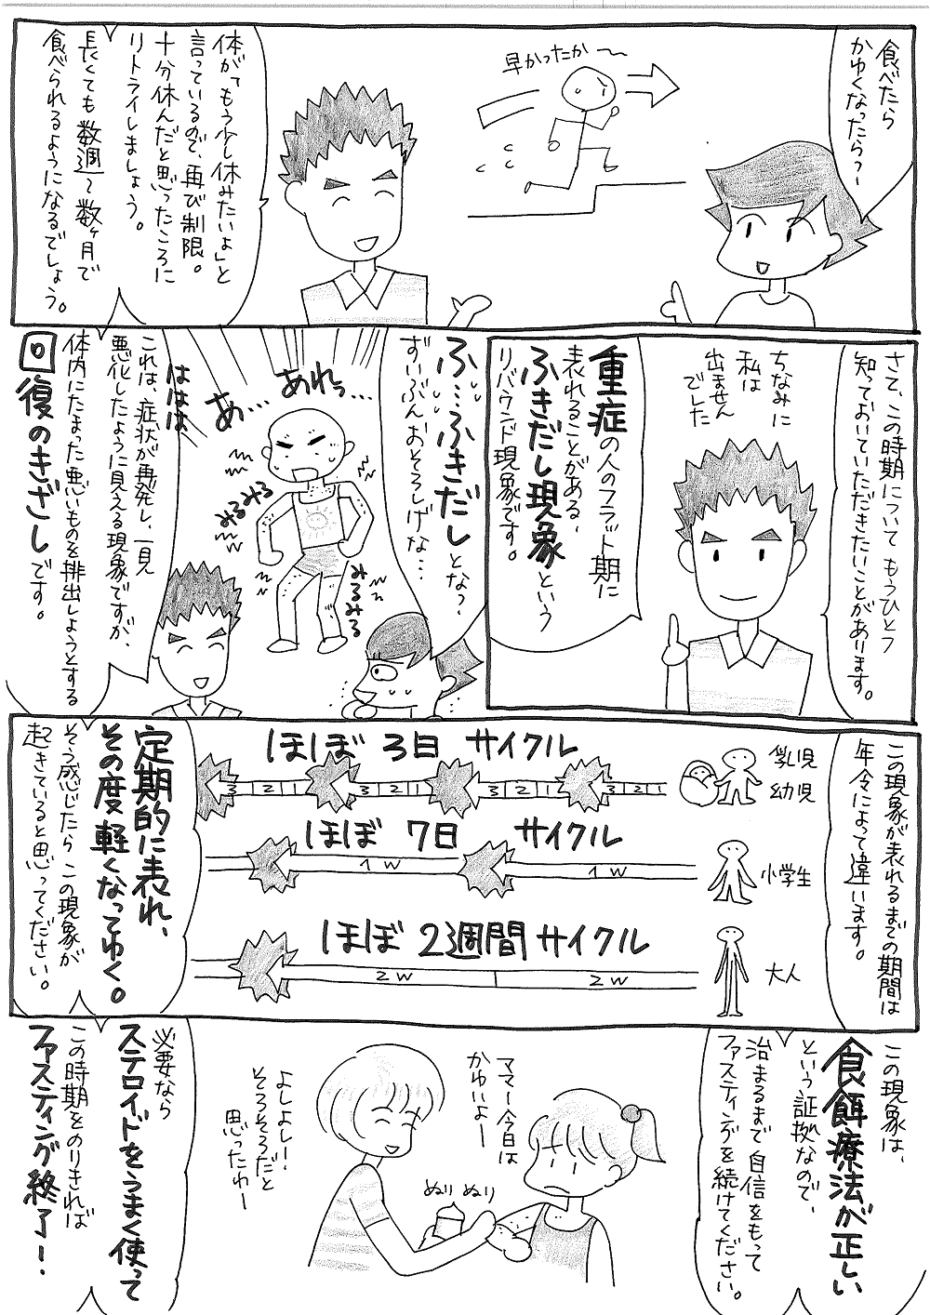 食べたら
かゆくなったら?~
早かったか~
体が「もう少し休みたいよ」と
言っているので、再び制限。
十分休んだと思ったころに
リトライしましょう。
長くても数週~数ヶ月で
食べられるようになるでしょう。
さて、この時期について もうひとつ
知っておいていただきたいことがあります。
ちなみに
私は
出ません
でした
重症の人のフラット期に
表れることがある、
ふきだし現象という
リバウンド現象です。
ふ…ふきだしとな?
ずいぶんおそろしげな…
あれっ…
あ…
ははは
みるみる
みるみる
これは、症状が再発し、一見
悪化したように見える現象ですが、
体内にたまった悪いものを排出しようとする
回復のきざしです。
この現象が表れるまでの期間は
年令によって違います。
ほぼ 3日 サイクル
3 2 1 3 2 1 3 2 1 3 2 1
乳児
幼児
ほぼ 7日 サイクル
1W 1W
小学生
ほぼ 2週間 サイクル
2W 2W
大人
定期的に表れ、
その度軽くなってゆく。
そう感じたら この現象が
起きていると思ってください。
この現象は、
食餌療法が正しい
という証拠なので、
治るまで自信をもって
ファスティングを続けてください。
ママー今日は
かゆいよー
ぬり ぬり
よしよし!
そろそろだと
思ったわー
必要なら
ステロイドをうまく使って
この時期をのりきれば
ファスティング終了!